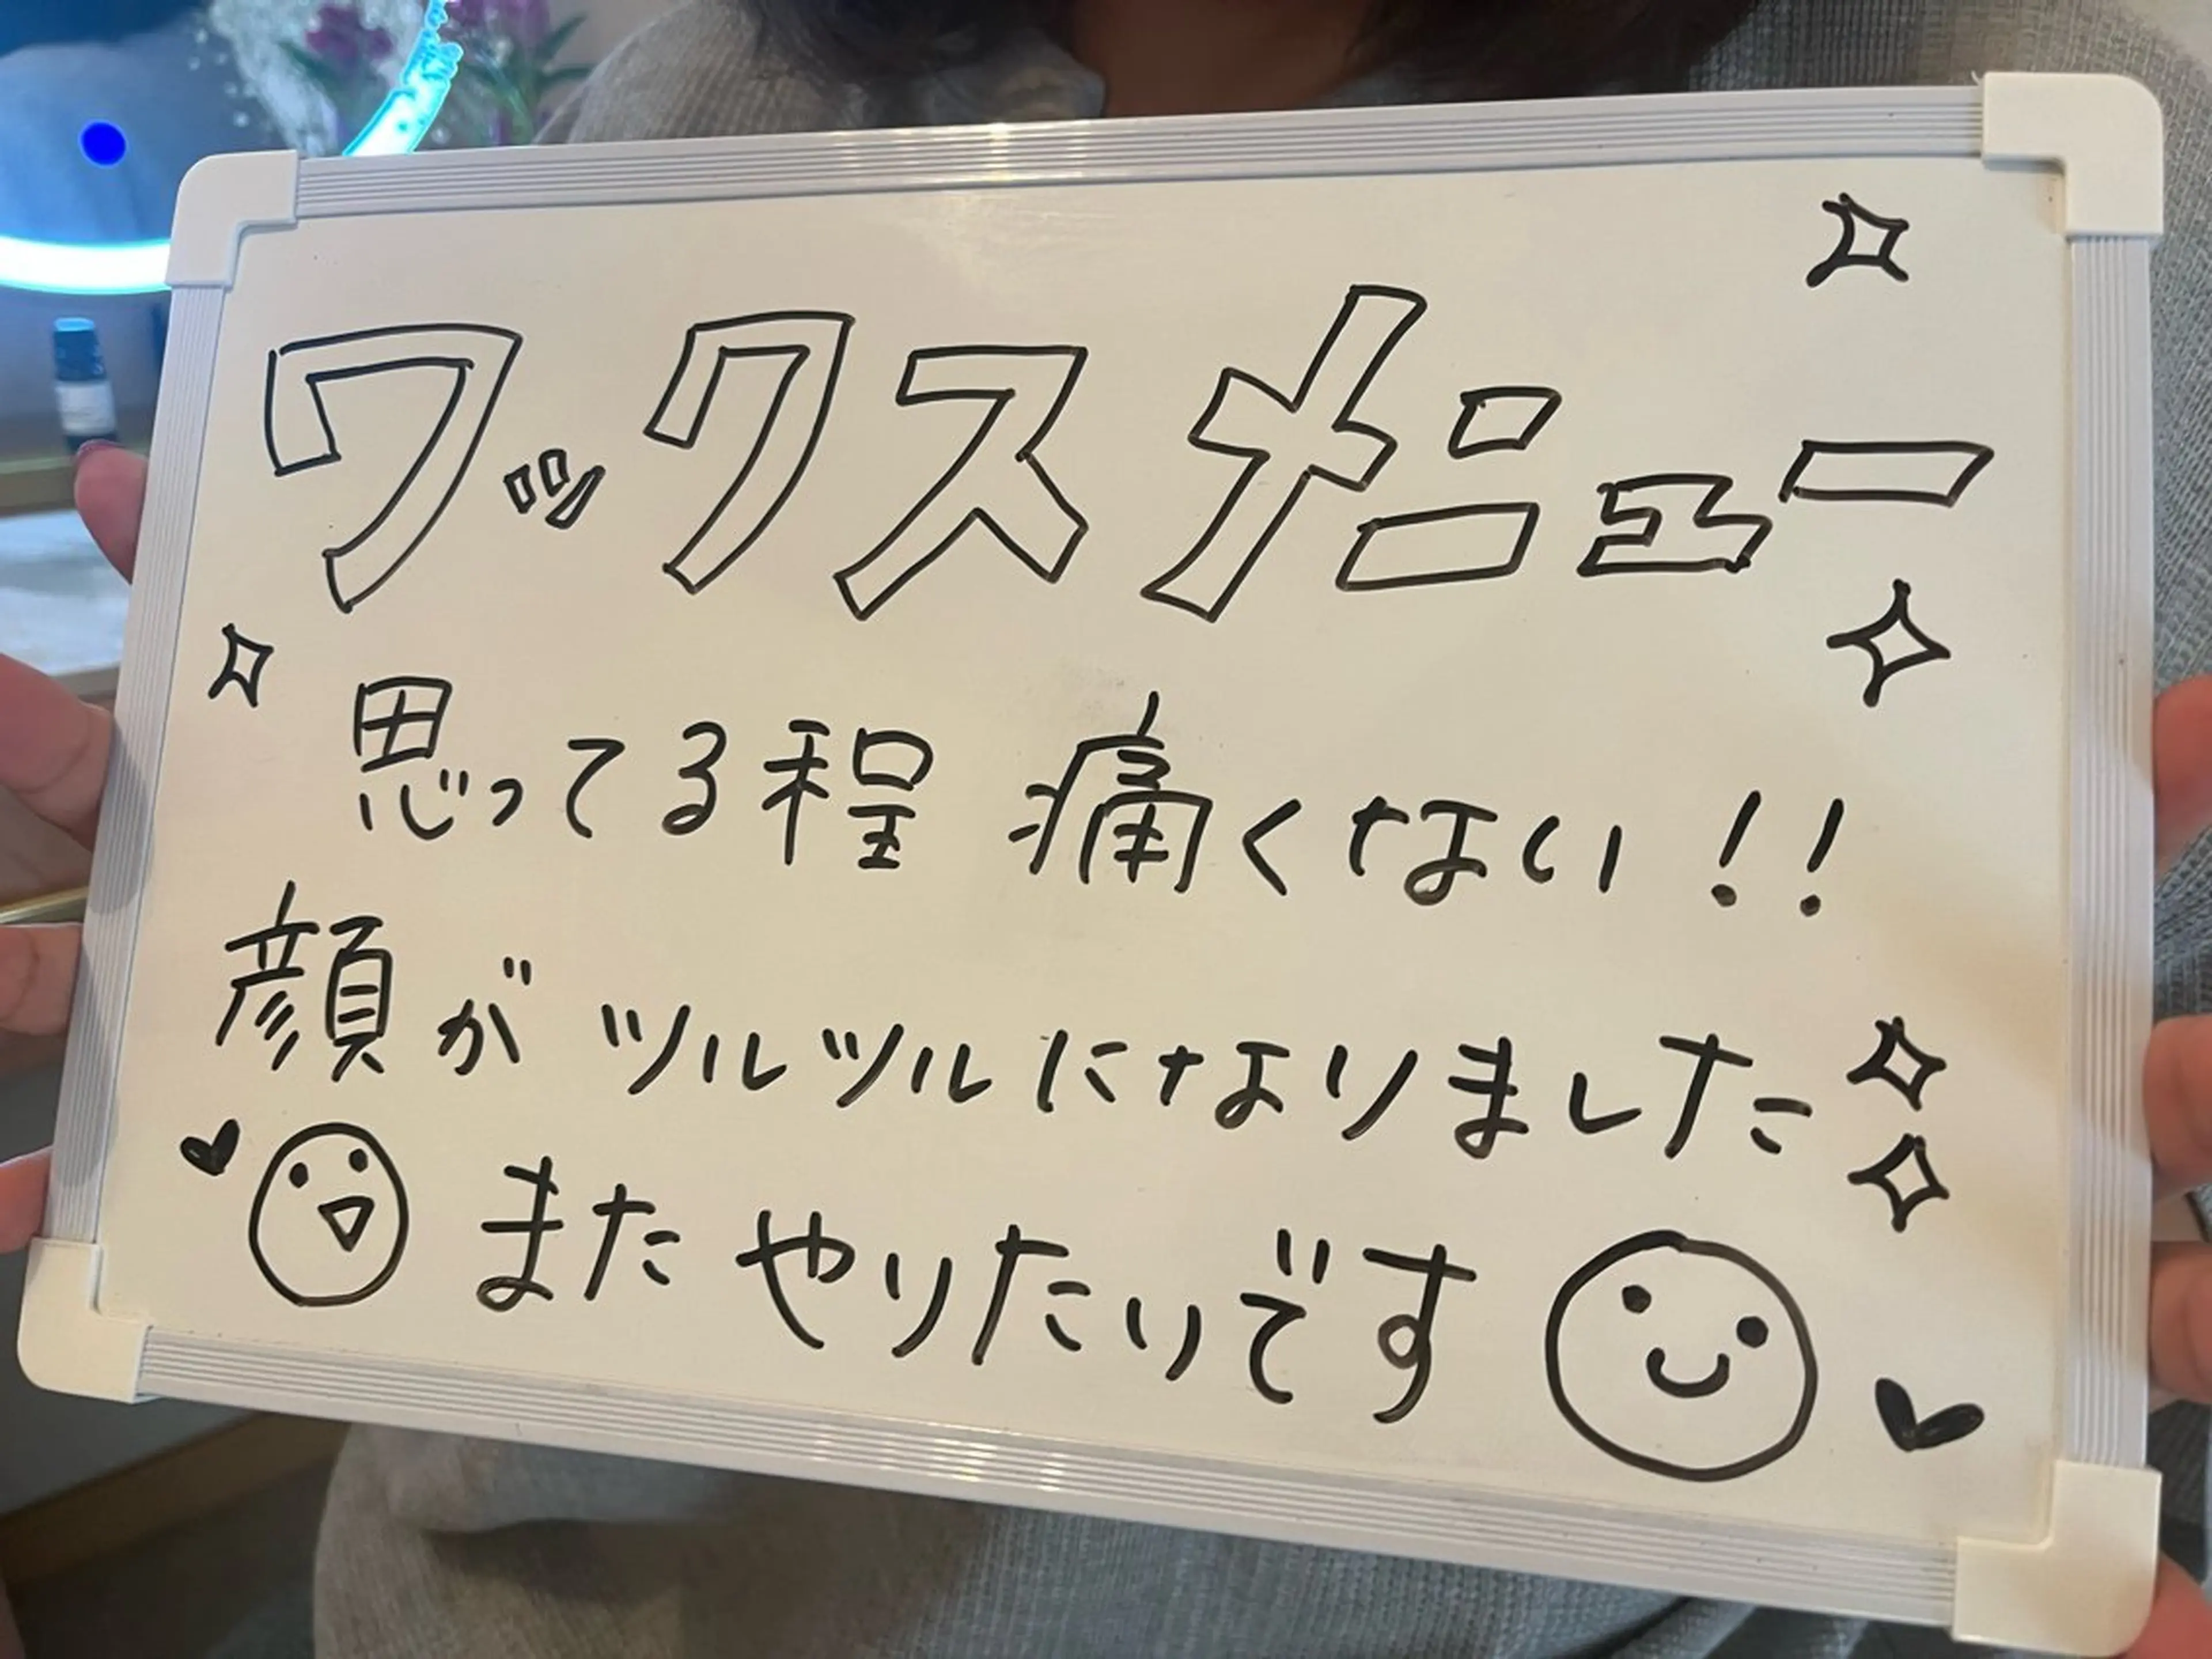 ワックスメニュー
思ってる程 痛くない!!
顔が ツルツルになりました
また やりたいです